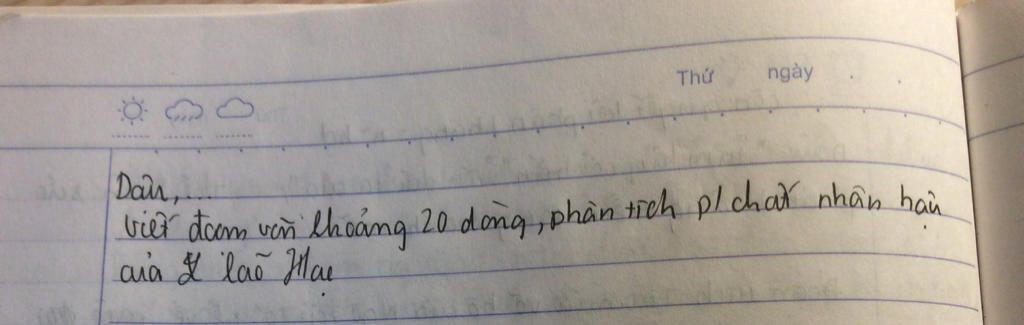 Thứ ngày . .
Dàn,...
viết đoạn văn khoảng 20 dòng, phân tích p/chất nhân hậu
của lão Hạc